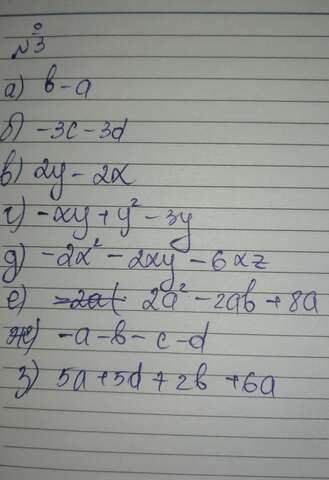 №3
а) b-a
б) -3c-3d
в) 2y-2x
г) -xy+y²-3y
д) -2x²-2xy-6xz
е) 2a²-2ab+8a
ж) -a-b-c-d
з) 5a+5d+2b+6a